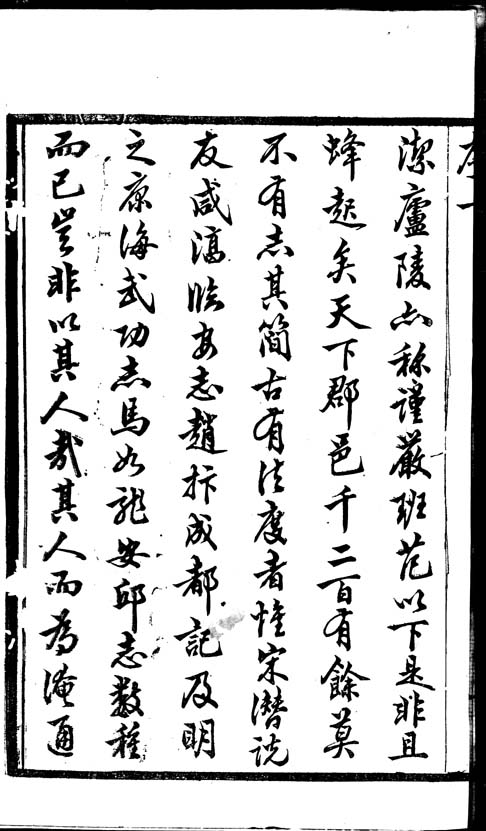 潔廬陵亦称謹嚴班范以下是非且
蜂起矣天下郡邑千二百有餘莫
不有志其簡古有法度者惟宋潛說
友咸淳臨安志趙抃成都記及明
之康海武功志馬如龍安邱志數種
而已豈非以其人哉其人而為淹通